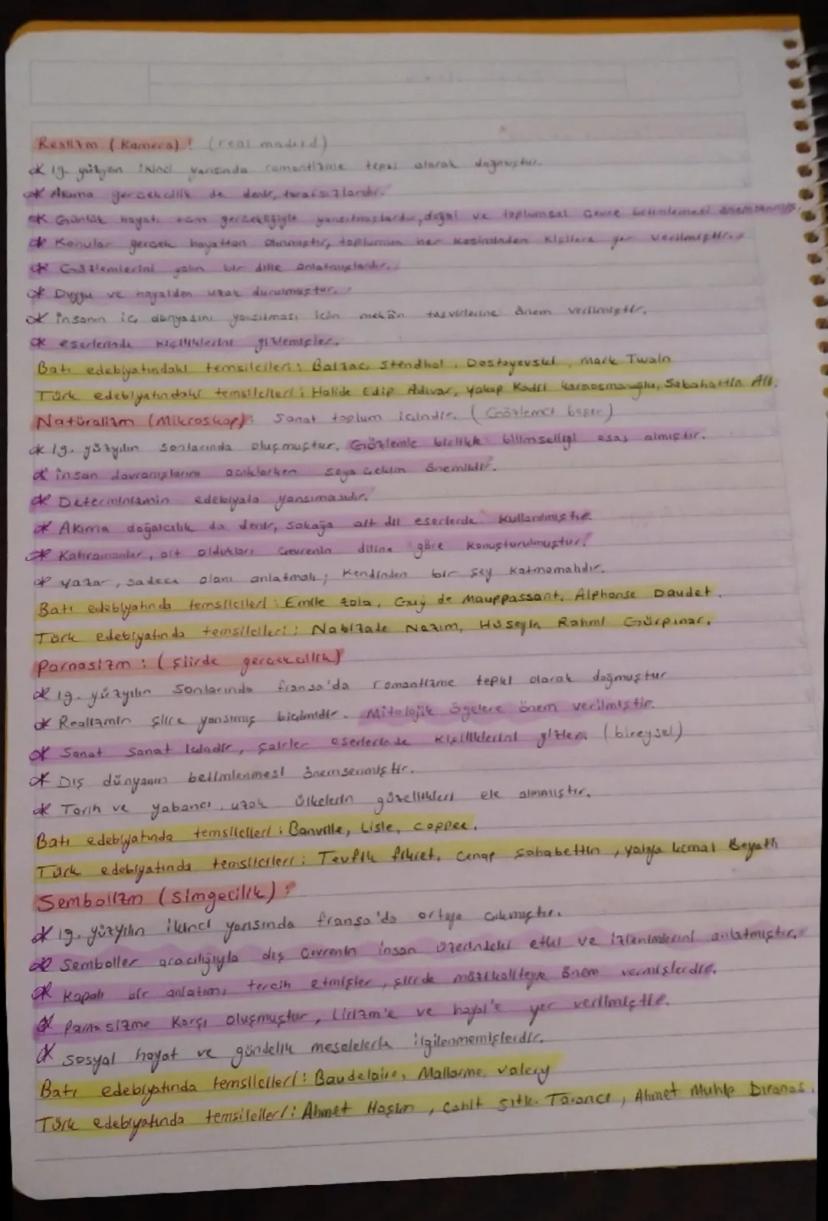 Realizm (Kamera): (real madrid)
* 19. yüzyılın ikinci yarısında romantizme tepki olarak doğmuştur.
* Akıma gerçekçilik de denir, tarafsızlardır.
* Günlük hayatı tüm gerçekliğiyle yansıtmışlardır, doğal ve toplumsal çevre betimlemesi önem
* Konular gerçek hayattan alınmıştır, toplumun her kesiminden kişilere yer verilmiştir.
* Gözlemlerini yalın bir dille anlatmışlardır.
* Duygu ve hayalden uzak durulmuştur.
* İnsanın iç dünyasını yansıtması için mekân tasvirlerine önem verilmiştir.
* eserlerinde kişiliklerini gizlemişler.
Batı edebiyatındaki temsilcileri: Balzac, Stendhal, Dostoyevski, Mark Twain
Türk edebiyatındaki temsilcileri: Halide Edip Adıvar, Yakup Kadri Karaosmanoğlu, Sabahattin Ali.
Natüralizm (Mikroskop): Sanat toplum içindir. (Gözlemci)
* 19. yüzyılın sonlarında oluşmuştur. Gözlemle birlikte bilimselliği esas almıştır.
* insan davranışlarını açıklarken soya çekim önemlidir.
* Determinizmin edebiyata yansımasıdır.
* Akıma doğalcılık da denir, sokağa ait dil eserlerde kullanılmıştır
* Kahramanlar, ait oldukları çevrenin diline göre konuşturulmuştur.
* yazar, sadece olanı anlatmalı; kendinden bir şey katmamalıdır.
Batı edebiyatında temsilcileri: Emile Zola, Guy de Mauppassant, Alphonse Daudet.
Türk edebiyatında temsilcileri: Nabizade Nazım, Hüseyin Rahmi Gürpınar.
Parnasizm: (şiirde gerçekçilik)
* 19. yüzyılın sonlarında fransa'da romantizme tepki olarak doğmuştur
* Realizmin şiire yansımış biçimidir. Mitolojik ögelere önem verilmiştir.
* Sanat sanat içindir, şairler eserlerinde kişiliklerini gizler. (bireysel)
* Dış dünyanın betimlenmesi önemsenmiştir.
* Tarih ve yabancı, uzak ülkelerin güzellikleri ele alınmıştır.
Batı edebiyatında temsilcileri: Banville, Lisle, Coppee.
Türk edebiyatında temsilcileri: Tevfik fikret, Cenap Şahabettin, Yahya Kemal Beyatlı
Sembolizm (simgecilik):
* 19. yüzyılın ikinci yarısında fransa'da ortaya çıkmıştır.
* Semboller aracılığıyla dış çevrenin insan üzerindeki etki ve izlenimlerini anlatmıştır.
* Kapalı bir anlatımı tercih etmişler, şiirde müzikaliteye önem vermişlerdir.
* Parnasizme karşı oluşmuştur, Lirizm'e ve hayal'e yer verilmiştir.
* Sosyal hayat ve gündelik meselelerle ilgilenmemişlerdir.
Batı edebiyatında temsilcileri: Baudelaire, Mallarme, valery
Türk edebiyatında temsilcileri: Ahmet Haşim, Cahit Sıtkı Tarancı, Ahmet Muhip Dıranas.